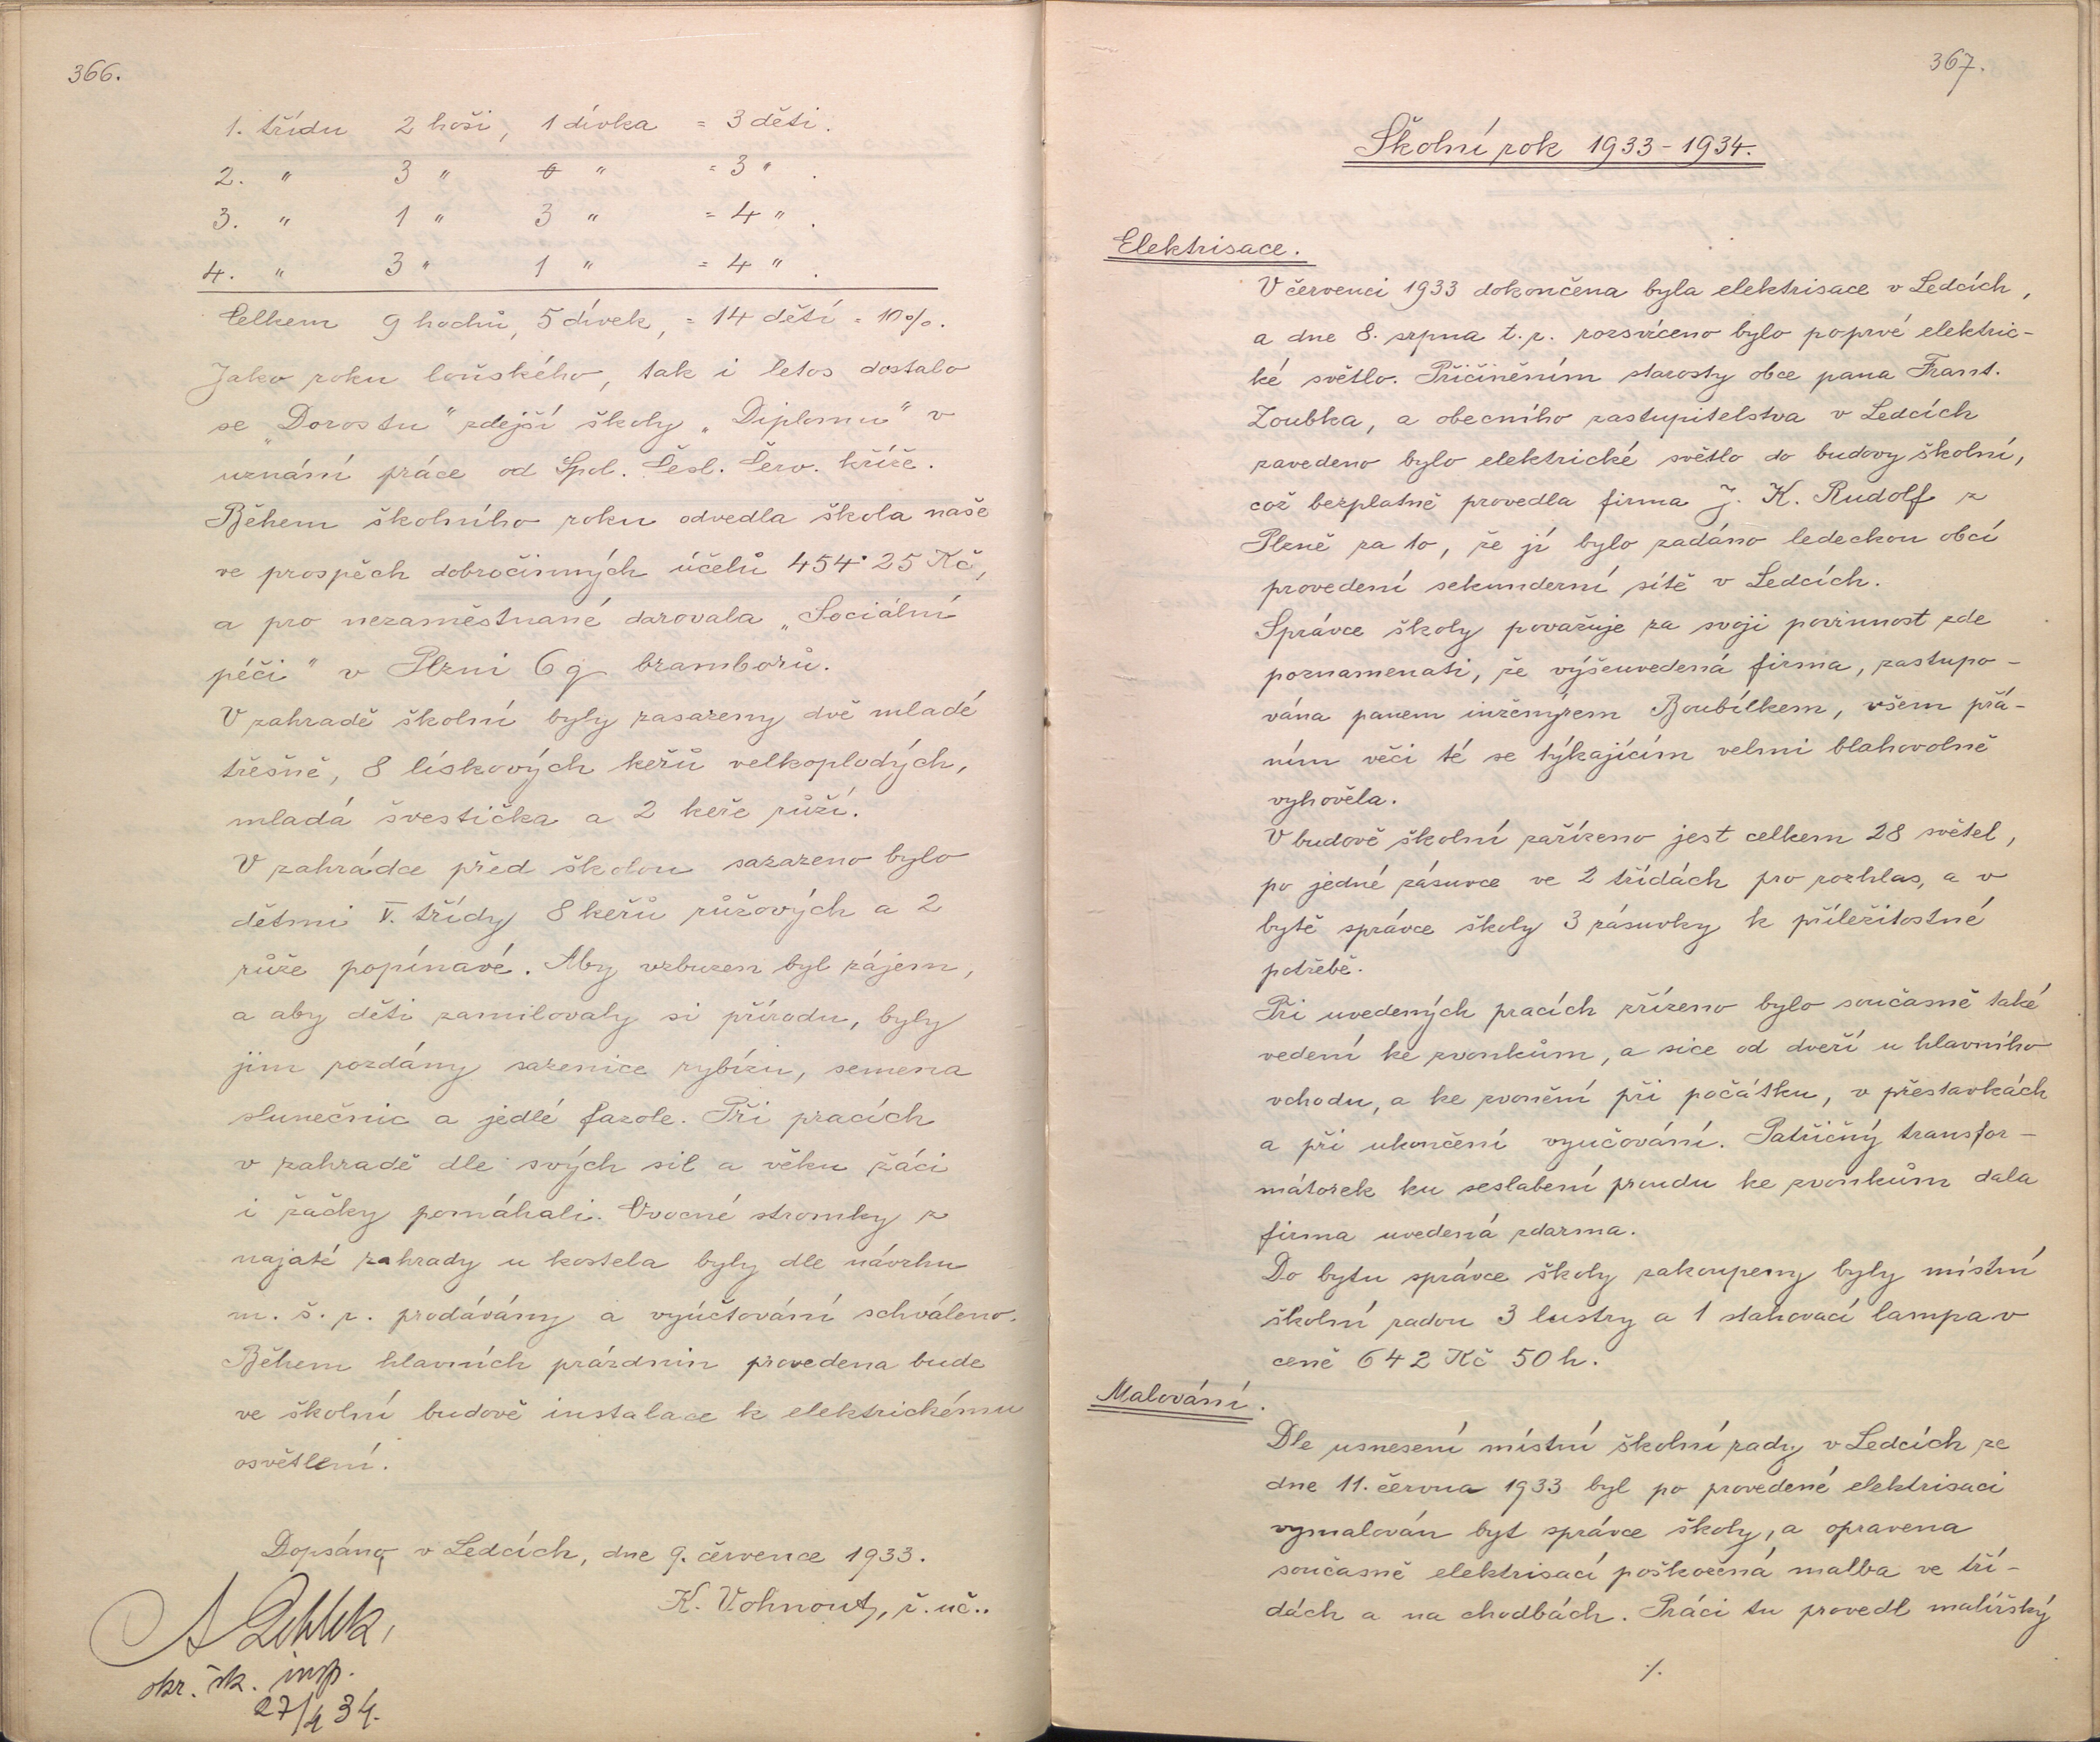 366.
1. třídu 2 hoši, 1 dívka = 3 děti.
2. " 3 " 0 " = 3 ".
3. " 1 " 3 " = 4 ".
4. " 3 " 1 " = 4 ".
Celkem 9 hochů, 5 dívek, = 14 dětí = 10%.
Jako roku loňského, tak i letos dostalo
se „Dorostu" zdejší školy „Diplomu" v
uznání práce od Spol. Česl. Červ. kříže.
Během školního roku odvedla škola naše
ve prospěch dobročinných účelů 454·25 Kč,
a pro nezaměstnané darovala „Sociální
péči" v Plzni 6 q bramborů.
V zahradě školní byly zasazeny dvě mladé
třešně, 8 lískových keřů velkoplodých,
mladá švestička a 2 keře růží.
V zahrádce před školou sazazeno bylo
dětmi V. třídy 8 keřů růžových a 2
růže popínavé. Aby vzbuzen byl zájem,
a aby děti zamilovaly si přírodu, byly
jim rozdány sazenice rybízu, semena
slunečnic a jedlé fazole. Při pracích
v zahradě dle svých sil a věku žáci
i žačky pomáhali. Ovocné stromky z
najaté zahrady u kostela byly dle návrhu
m. š. r. prodávány a vyúčtování schváleno.
Během hlavních prázdnin provedena bude
ve školní budově instalace k elektrickému
osvětlení.
Dopsáno v Ledcích, dne 9. července 1933.
K. Vohnout, ř. uč..
okr. šk. insp.
27/4 34.
367.
Školní rok 1933-1934.
Elektrisace.
V červenci 1933 dokončena byla elektrisace v Ledcích,
a dne 8. srpna t. r. rozsvíceno bylo poprvé elektric-
ké světlo. Přičiněním starosty obce pana Frant.
Zoubka, a obecního zastupitelstva v Ledcích
zavedeno bylo elektrické světlo do budovy školní,
což bezplatně provedla firma J. K. Rudolf z
Plzně za to, že jí bylo zadáno ledeckou obcí
provedení sekunderní sítě v Ledcích.
Správce školy považuje za svoji povinnost zde
poznamenati, že výšeuvedená firma, zastupo-
vána panem inženýrem Boubílkem, všem přá-
ním věci té se týkajícím velmi blahovolně
vyhověla.
V budově školní zařízeno jest celkem 28 světel,
po jedné zásuvce ve 2 třídách pro rozhlas, a v
bytě správce školy 3 zásuvky k příležitostné
potřebě.
Při uvedených pracích zřízeno bylo současně také
vedení ke zvonkům, a sice od dveří u hlavního
vchodu, a ke zvonění při počátku, v přestavkách
a při ukončení vyučování. Patřičný transfor-
mátorek ku seslabení proudu ke zvonkům dala
firma uvedená zdarma.
Do bytu správce školy zakoupeny byly místní
školní radou 3 lustry a 1 stahovací lampa v
ceně 642 Kč 50 h.
Malování.
Dle usnesení místní školní rady v Ledcích ze
dne 11. června 1933 byl po provedené elektrisaci
vymalován byt správce školy, a opravena
současně elektrisací poškozená malba ve tří-
dách a na chodbách. Práci tu provedl malířský
./.